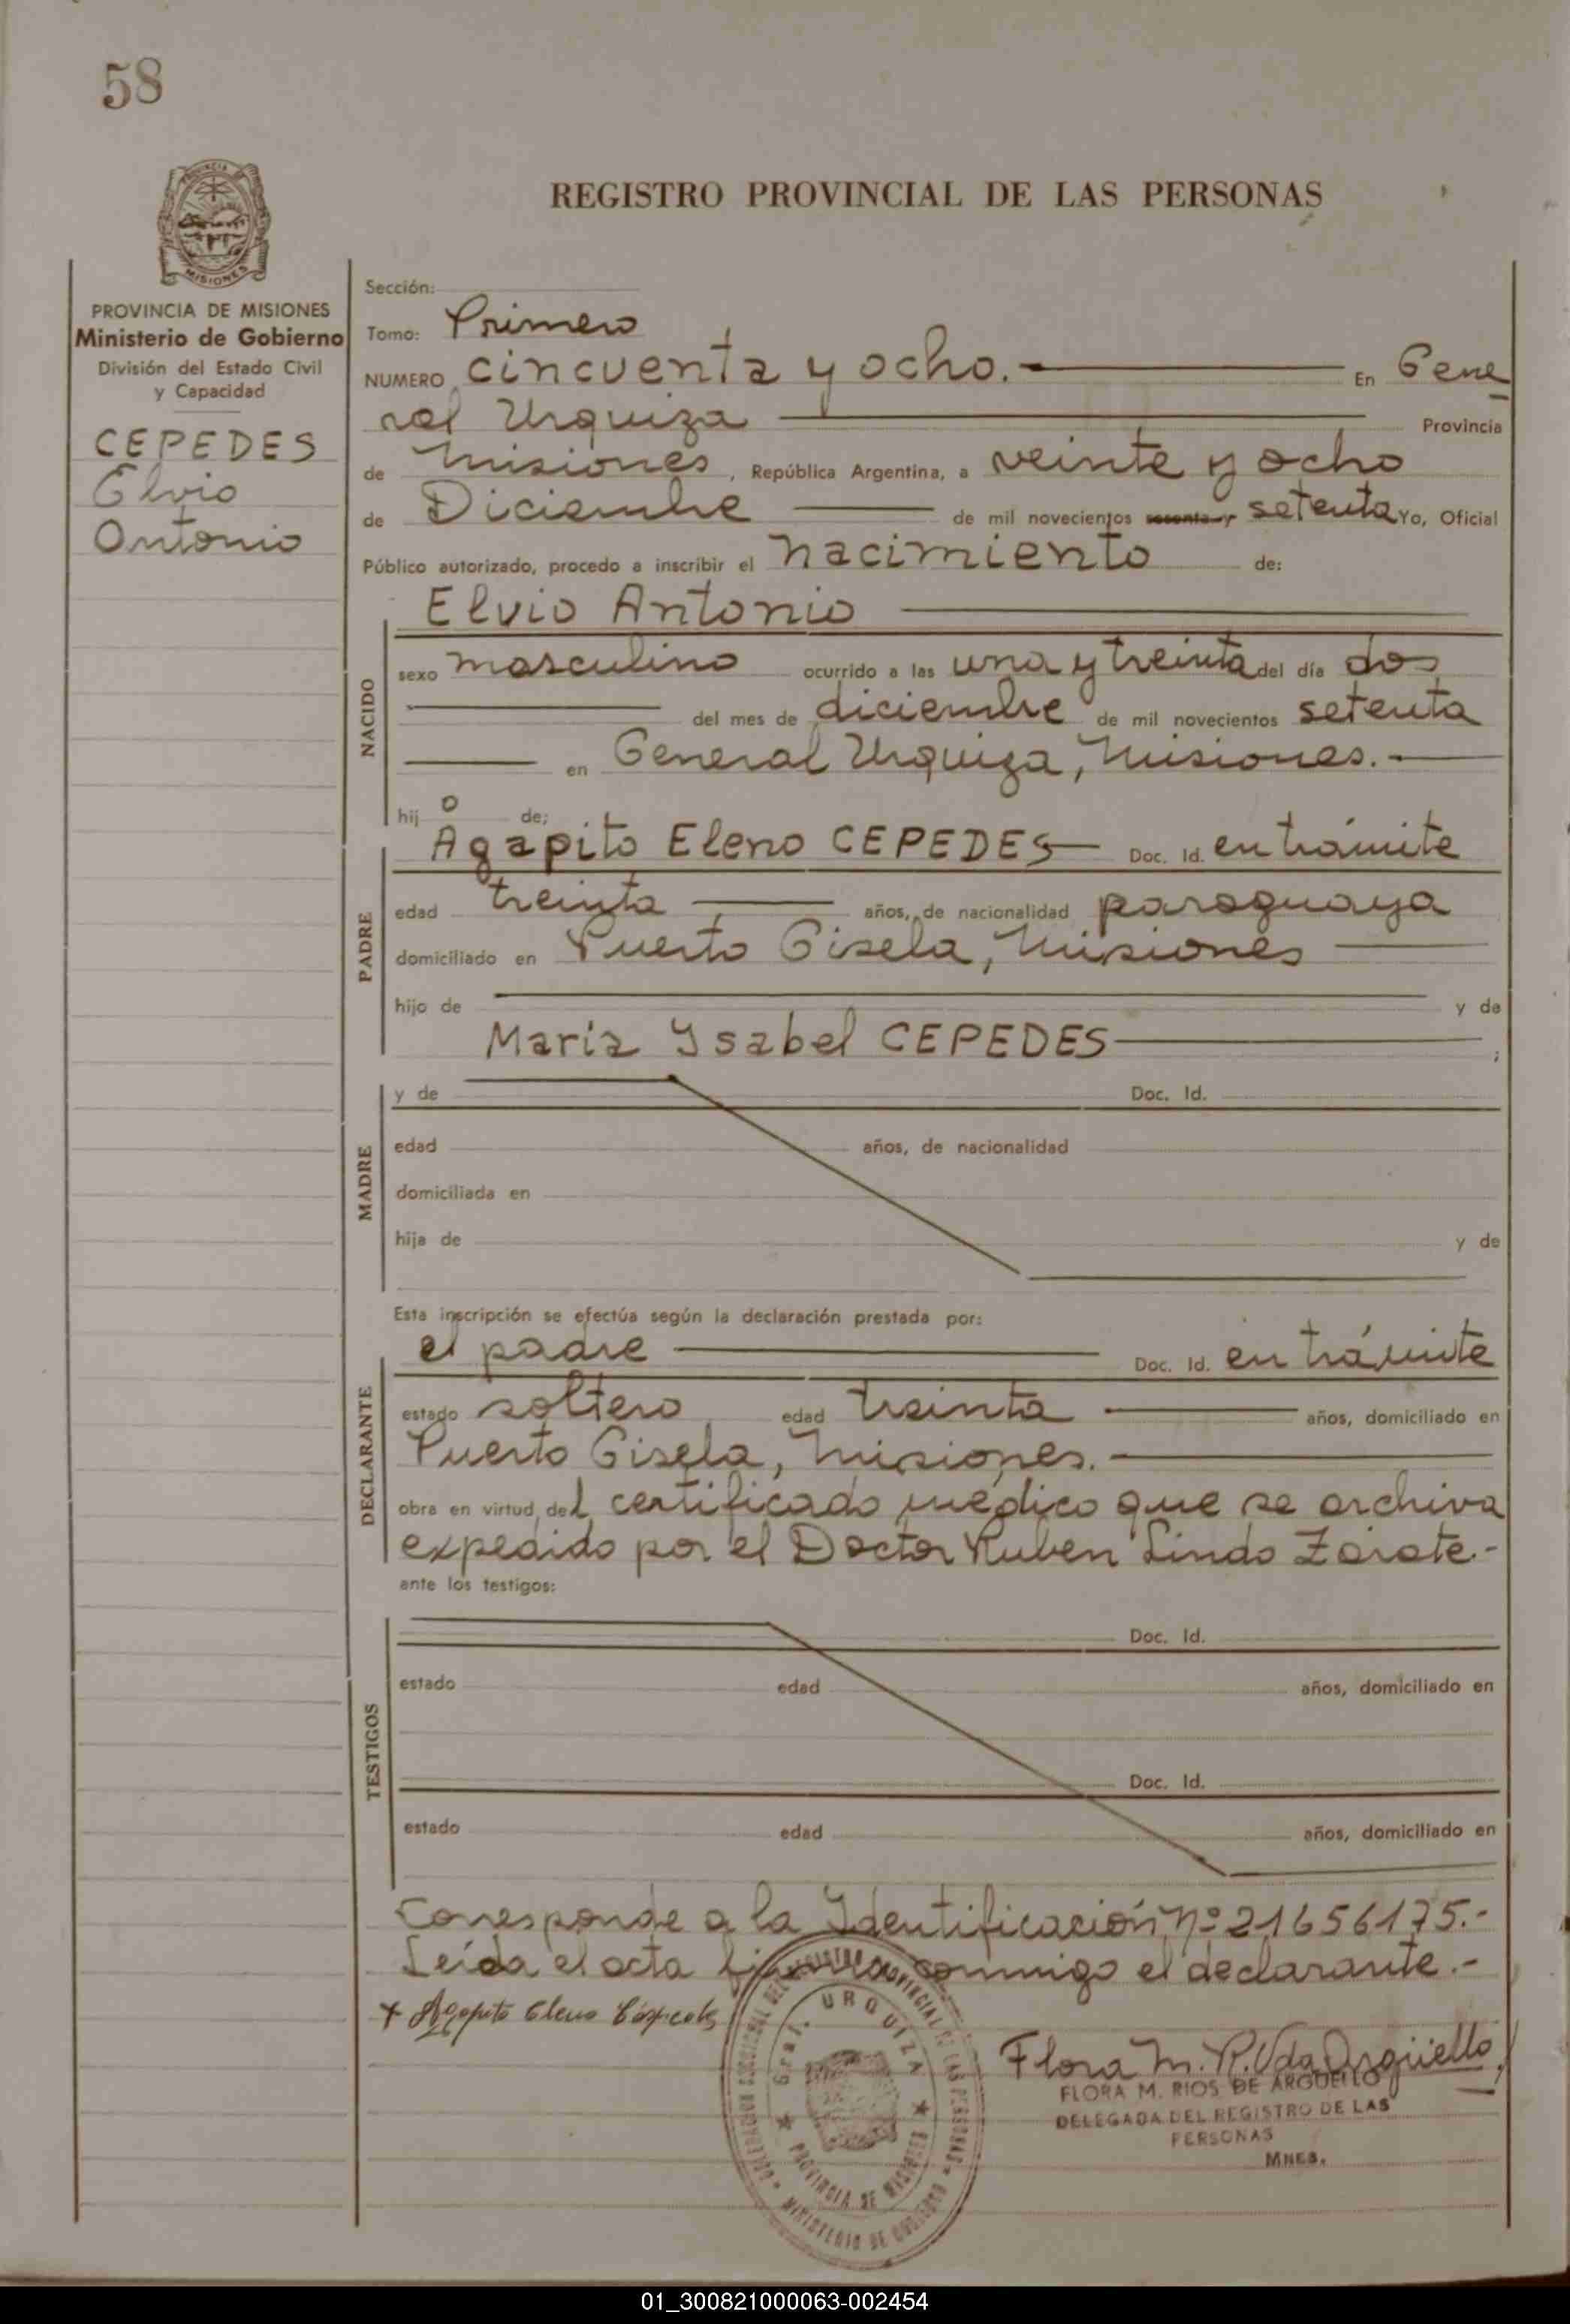 58
REGISTRO PROVINCIAL DE LAS PERSONAS
PROVINCIA DE MISIONES
Ministerio de Gobierno
División del Estado Civil
y Capacidad
CEPEDES
Elvio
Antonio
Sección:
Tomo: Primero
NUMERO cincuenta y ocho. En Gene
ral Urquiza Provincia
de Misiones, República Argentina, a veinte y ocho
de Diciembre de mil novecientos sesenta y setenta Yo, Oficial
Público autorizado, procedo a inscribir el nacimiento de:
Elvio Antonio
NACIDO
sexo masculino ocurrido a las una y treinta del día dos
del mes de diciembre de mil novecientos setenta
en General Urquiza, Misiones.-
hij o de;
PADRE
Agapito Eleno CEPEDES Doc. Id. en trámite
edad treinta años, de nacionalidad paraguaya
domiciliado en Puerto Gisela, Misiones
hijo de y de
Maria Ysabel CEPEDES ;
MADRE
y de Doc. Id.
edad años, de nacionalidad
domiciliada en
hija de y de
Esta inscripción se efectúa según la declaración prestada por:
DECLARANTE
el padre Doc. Id. en trámite
estado soltero edad treinta años, domiciliado en
Puerto Gisela, Misiones.
obra en virtud del certificado médico que se archiva
expedido por el Doctor Ruben Lindo Zárate.-
ante los testigos:
TESTIGOS
Doc. Id.
estado edad años, domiciliado en
Doc. Id.
estado edad años, domiciliado en
Corresponde a la Identificación, nº 21656175.-
Leída el acta firma conmigo el declarante.-
+ Agapito Eleno
Flora M. R. Vda Argüello
FLORA M. RIOS DE ARGUELLO
DELEGADA DEL REGISTRO DE LAS
PERSONAS
MNES.
Gral. URQUIZA
PROVINCIA DE MISIONES
MINISTERIO DE GOBIERNO
PROVINCIA DE
MISIONES
01_300821000063-002454